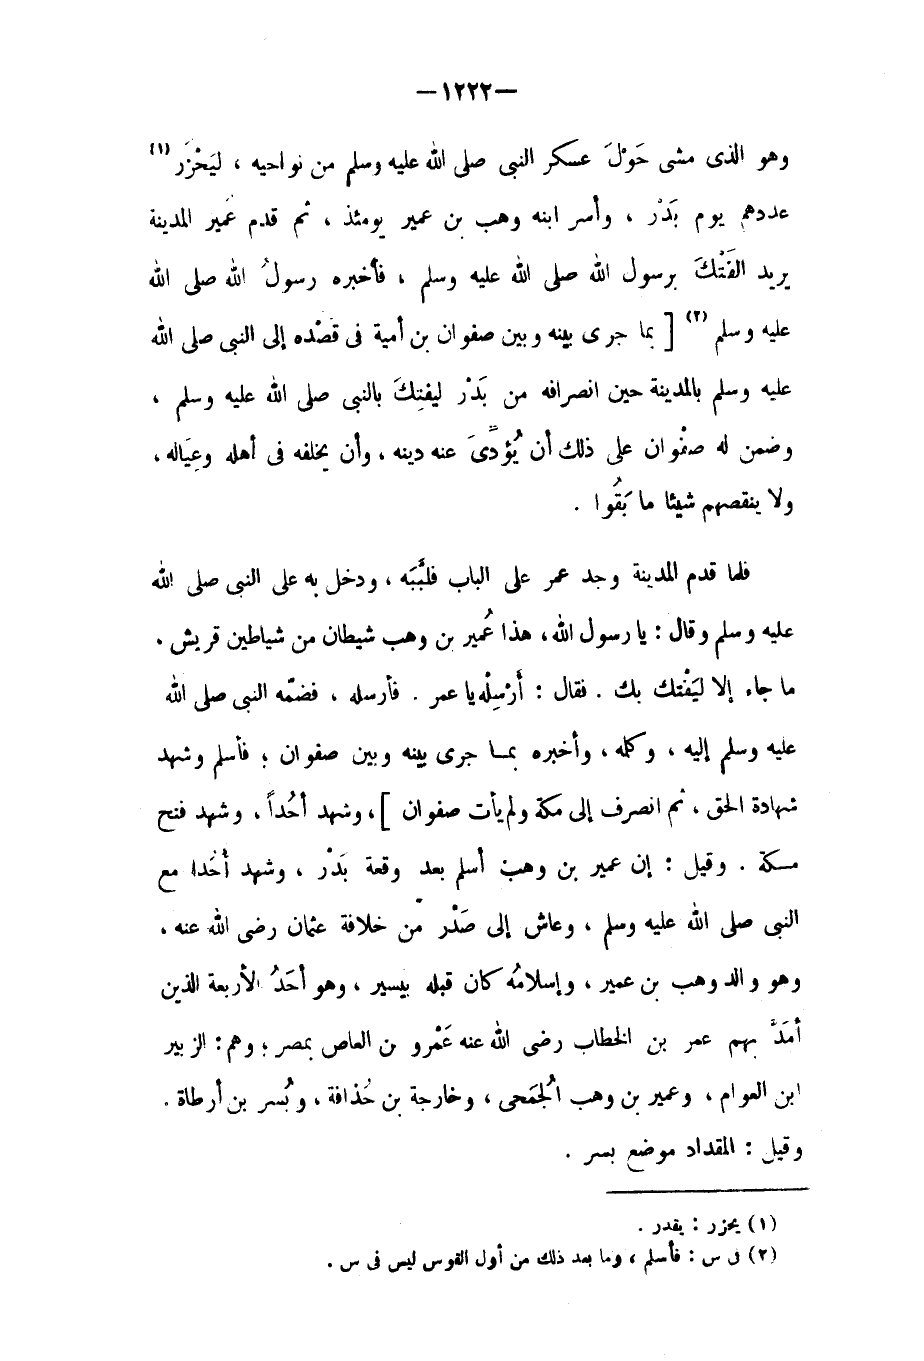 —١٢٢٢—
وهو الذى مشى حَوْلَ عسكر النبى صلى الله عليه وسلم من نواحيه ، ليَحْزَر (١)
عددهم يوم بَدْر ، وأسر ابنه وهب بن عمير يومئذ ، ثم قدم عُمير المدينة
يريد الفَتْكَ برسول الله صلى الله عليه وسلم ، فأخبره رسولُ الله صلى الله
عليه وسلم (٢) [ بما جرى بينه وبين صفوان بن أمية فى قصْده إلى النبى صلى الله
عليه وسلم بالمدينة حين انصرافه من بَدْر ليفتِكَ بالنبى صلى الله عليه وسلم ،
وضمن له صفْوان على ذلك أن يُؤدّىَ عنه دينه ، وأن يخلفه فى أهله وعِيَاله ،
ولا ينقصهم شيئا ما بَقُوا .
فلما قدم المدينة وجد عمر على الباب فلَبَّبَه ، ودخل به على النبى صلى الله
عليه وسلم وقال : يا رسول الله ، هذا عُمير بن وهب شيطان من شياطين قريش .
ما جاء إلا ليَفْتك بك . فقال : أَرْسِلْه يا عمر . فأرسله ، فضمّه النبى صلى الله
عليه وسلم إليه ، وكلمه ، وأخبره بما جرى بينه وبين صفوان ؛ فأسلم وشهد
شهادة الحق ، ثم انصرف إلى مكة ولم يأت صفوان ] ، وشهد أحُداً ، وشهد فتح
مكة . وقيل : إن عمير بن وهب أسلم بعد وقعة بَدْر ، وشهد أُحُدا مع
النبى صلى الله عليه وسلم ، وعاش إلى صَدْر من خلافة عثمان رضى الله عنه ،
وهو والد وهب بن عمير ، وإسلامُه كان قبله بيسير ، وهو أحَدُ الأربعة الذين
أمَدَّ بهم عمر بن الخطاب رضى الله عنه عَمْرو بن العاص بمصر ؛ وهم : الزبير
ابن العوام ، وعمير بن وهب الْجُمَحى ، وخارجة بن حُذافة ، وبُسر بن أرطاة .
وقيل : المقداد موضع بسر .
(١) يحزر : يقدر .
(٢) فى س : فأسلم ، وما بعد ذلك من أول القوس ليس فى س .